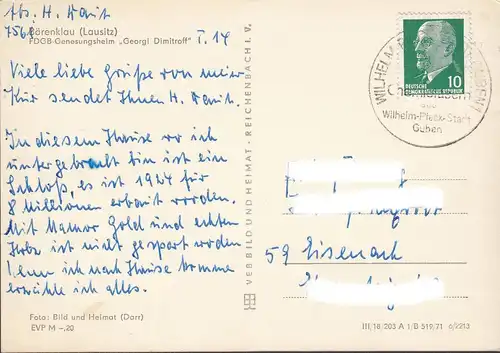 Abs. H. Kanit
7561
Bärenklau (Lausitz)
FDGB-Genesungsheim „Georgi Dimitroff" T. 14
Viele liebe Grüße von meier
Kur sendet Ihnen H. Kanit.
In diesem Hause wo ich
untergebracht bin ist ein
Schloß, es ist 1924 für
8 Millionen erbaut worden.
Mit Mamor Gold und echten
Holz ist nicht gespart worden
Wenn ich nach Hause komme
erzähle ich alles.
Foto: Bild und Heimat (Darr)
EVP M –,20
VEB BILD UND HEIMAT · REICHENBACH I. V.
DEUTSCHE
DEMOKRATISCHE REPUBLIK
10
WILHELM
Wilhelm-Pieck-Stadt
Guben
59 Eisenach
III/18/203 A 1/B 519/71 6/2213